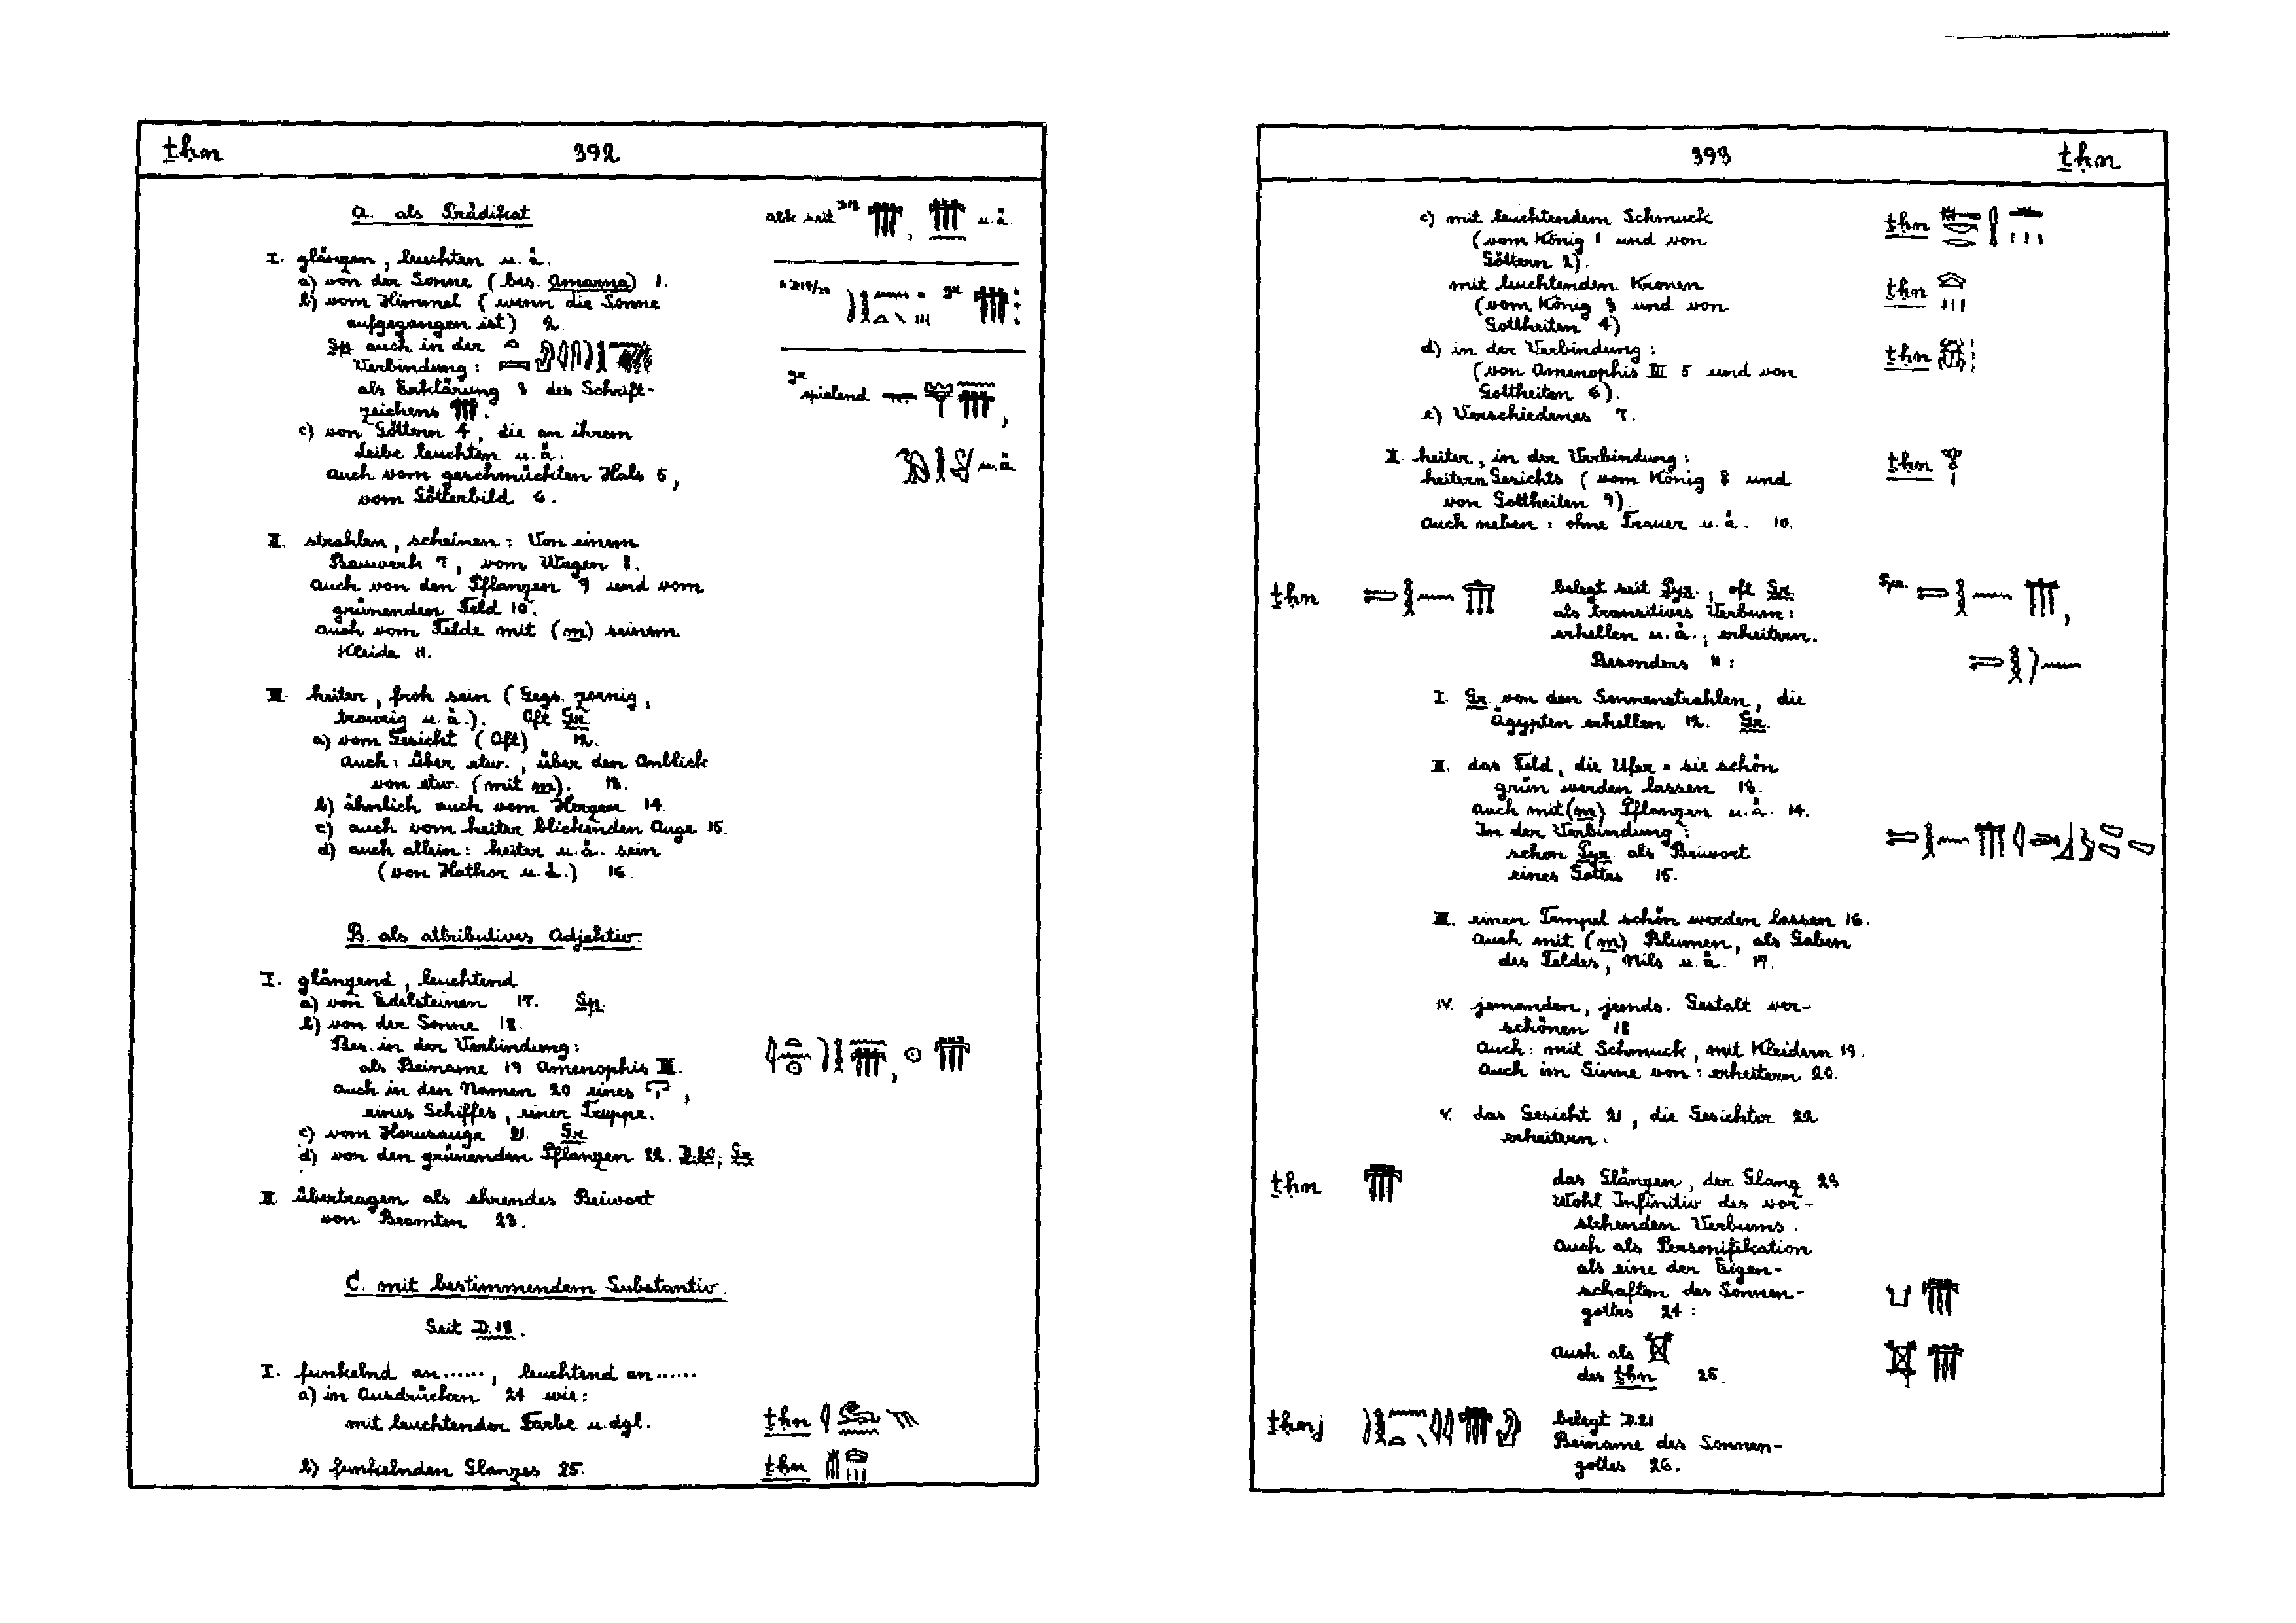 ṯḥn 392
A. als Prädikat
abk seit D18 , u. ä.
I. glänzen, leuchten u. ä.
a) von der Sonne (bes. Amarna) 1.
b) vom Himmel (wenn die Sonne
aufgegangen ist) 2.
Sp auch in der
Verbindung:
als Erklärung 3 des Schrift-
zeichens .
c) von Göttern 4, die an ihrem
Leibe leuchten u. ä.
auch vom geschmückten Hals 5,
vom Götterbild 6.
D19/20 gr
gr
spielend ,
u. ä
II. strahlen, scheinen: Von einem
Bauwerk 7, vom Wagen 8.
auch von den Pflanzen 9 und vom
grünenden Feld 10.
auch vom Felde mit (m) seinem
Kleide 11.
III. heiter, froh sein (Gegs. zornig,
traurig u. ä.). Oft Gr.
a) vom Gesicht (Oft) 12.
Auch: über etw., über den Anblick
von etw. (mit m). 13.
b) ähnlich auch vom Herzen 14.
c) auch vom heiter blickenden Auge 15.
d) auch allein: heiter u. ä. sein
(von Hathor u. ä.) 16.
B. als attributives Adjektiv.
I. glänzend, leuchtend
a) von Edelsteinen 17. Sp.
b) von der Sonne 18.
Bes. in der Verbindung:
als Beiname 19 Amenophis III.
auch in den Namen 20 eines ,
eines Schiffes, einer Truppe.
c) vom Horusauge 21. Gr.
d) von den grünenden Pflanzen 22. D.20; Gr.
II übertragen als ehrendes Beiwort
von Beamten 23.
C. mit bestimmendem Substantiv.
Seit D.18.
I. funkelnd an ......, leuchtend an ......
a) in Ausdrücken 24 wie:
mit leuchtender Farbe u. dgl. ṯḥn
b) funkelnden Glanzes 25. ṯḥn
393 ṯḥn
c) mit leuchtendem Schmuck ṯḥn
(vom König 1 und von
Göttern 2).
mit leuchtenden Kronen ṯḥn
(vom König 3 und von
Gottheiten 4)
d) in der Verbindung: ṯḥn
(von Amenophis III 5 und von
Gottheiten 6).
e) Verschiedenes 7.
II. heiter, in der Verbindung: ṯḥn
heitern Gesichts (vom König 8 und
von Gottheiten 9).
auch neben: ohne Trauer u. ä. 10.
ṯḥn belegt seit Pyr., oft Gr. Pyr.
als transitives Verbum:
erhellen u. ä., erheitern.
Besonders 11:
I. Gr. von den Sonnenstrahlen, die
Ägypten erhellen 12. Gr.
II. das Feld, die Ufer = sie schön
grün werden lassen 13.
auch mit (m) Pflanzen u. ä. 14.
In der Verbindung:
schon Pyr. als Beiwort
eines Gottes 15.
III. einen Tempel schön werden lassen 16.
auch mit (m) Blumen, als Gaben
des Feldes, Nils u. ä. 17.
IV. jemanden, jemds. Gestalt ver-
schönen 18
Auch: mit Schmuck, mit Kleidern 19.
Auch im Sinne von: erheitern 20.
V. das Gesicht 21, die Gesichter 22
erheitern.
ṯḥn das Glänzen, der Glanz 23
Wohl Infinitiv des vor-
stehenden Verbums.
Auch als Personifikation
als eine der Eigen-
schaften des Sonnen-
gottes 24:
Auch als
des ṯḥn 25.
ṯḥnj belegt D.21
Beiname des Sonnen-
gottes 26.